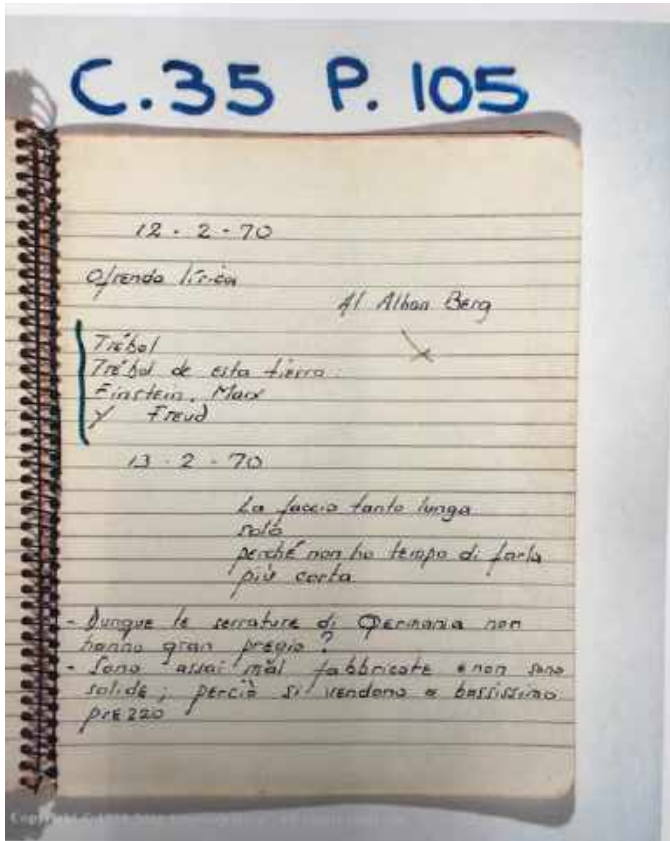 C.35 P. 105
12 - 2 - 70
Ofrenda lírica
Al Alban Berg
Trébol
Trébol de esta tierra:
Einstein, Marx
y Freud
13 - 2 - 70
La faccio tanto lunga
solo
perché non ho tempo di farla
più corta
- Dunque le serrature di Germania non
hanno gran pregio?
- Sono assai mal fabbricate e non sono
solide; perciò si vendono a bassissimo
prezzo